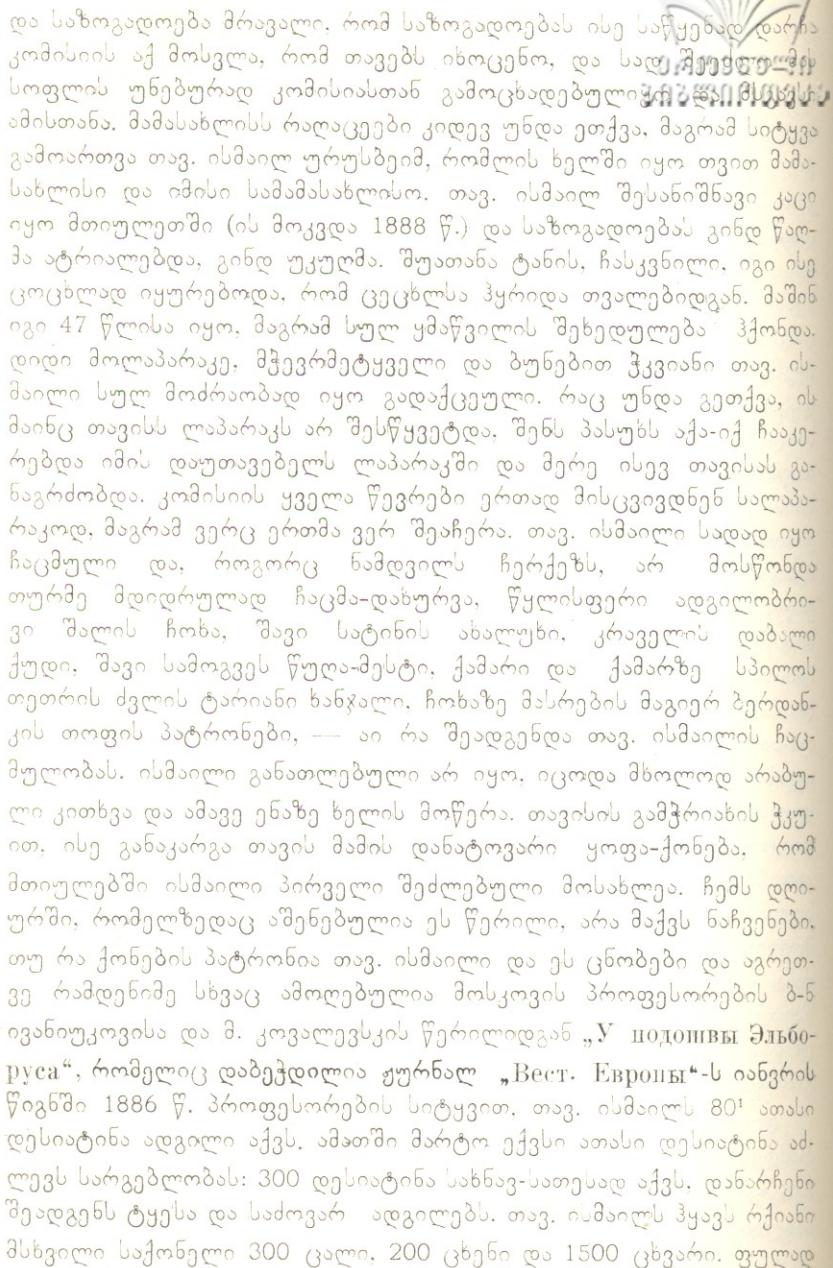 და საზოგადოება მრავალი, რომ საზოგადოებას ისე საწყენად დარჩა
კომისიის აქ მოსვლა, რომ თავებს იხოცენო, და სად
სოფლის უნებურად კომისიასთან
ამისთანა. მამასახლისს რაღაცეები კიდევ უნდა ეთქვა, მაგრამ სიტყვა
გამოართვა თავ. ისმაილ ურუსბეიმ, რომლის ხელში იყო თვით მამა-
სახლისი და იმისი სამამასახლისო. თავ. ისმაილ შესანიშნავი კაცი
იყო მთიულეთში (ის მოკვდა 1888 წ.) და საზოგადოებას გინდ წაღ-
მა ატრიალებდა, გინდ უკუღმა. შუათანა ტანის, ჩასკვნილი, იგი ისე
ცოცხლად იყურებოდა, რომ ცეცხლსა ჰყრიდა თვალებიდგან. მაშინ
იგი 47 წლისა იყო, მაგრამ სულ ყმაწვილის შეხედულება ჰქონდა.
დიდი მოლაპარაკე, მჭევრმეტყველი და ბუნებით ჭკვიანი თავ. ის-
მაილი სულ მოძრაობად იყო გადაქცეული. რაც უნდა გეთქვა, ის
მაინც თავისს ლაპარაკს არ შესწყვეტდა, შენს პასუხს აქა-იქ ჩააკე-
რებდა იმის დაუთავებელს ლაპარაკში და მერე ისევ თავისას გა-
ნაგრძობდა. კომისიის ყველა წევრები ერთად მისცვივდნენ სალაპა-
რაკოდ, მაგრამ ვერც ერთმა ვერ შეაჩერა. თავ. ისმაილი სადად იყო
ჩაცმული და, როგორც ნამდვილს ჩერქეზს, არ მოსწონდა
თურმე მდიდრულად ჩაცმა-დახურვა, წყლისფერი ადგილობრი-
ვი შალის ჩოხა, შავი სატინის ახალუხი, კრაველის დაბალი
ქუდი, შავი სამოგვეს წუღა-მესტი, ქამარი და ქამარზე სპილოს
თეთრის ძვლის ტარიანი ხანჯალი, ჩოხაზე მასრების მაგიერ ბერდან-
კის თოფის პატრონები, — აი რა შეადგენდა თავ. ისმაილის ჩაც-
მულობას. ისმაილი განათლებული არ იყო, იცოდა მხოლოდ არაბუ-
ლი კითხვა და ამავე ენაზე ხელის მოწერა. თავისის გამჭრიახის ჭკუ-
ით, ისე განაკარგა თავის მამის დანატოვარი ყოფა-ქონება, რომ
მთიულებში ისმაილი პირველი შეძლებული მოსახლეა. ჩემს დღი-
ურში, რომელზედაც აშენებულია ეს წერილი, არა მაქვს ნაჩვენები,
თუ რა ქონების პატრონია თავ. ისმაილი და ეს ცნობები და აგრეთ-
ვე რამდენიმე სხვაც ამოღებულია მოსკოვის პროფესორების ბ-ნ
ივანიუკოვისა და მ. კოვალევსკის წერილიდგან „У подошвы Эльбо-
руса“, რომელიც დაბეჭდილია ჟურნალ „Вест. Европы“-ს იანვრის
წიგნში 1886 წ. პროფესორების სიტყვით, თავ. ისმაილს 80¹ ათასი
დესიატინა ადგილი აქვს, ამათში მარტო ექვსი ათასი დესიატინა აძ-
ლევს სარგებლობას: 300 დესიატინა სახნავ-სათესად აქვს, დანარჩენი
შეადგენს ტყესა და საძოვარ ადგილებს. თავ. ისმაილს ჰყავს რქიანი
მსხვილი საქონელი 300 ცალი, 200 ცხენი და 1500 ცხვარი. ფულად